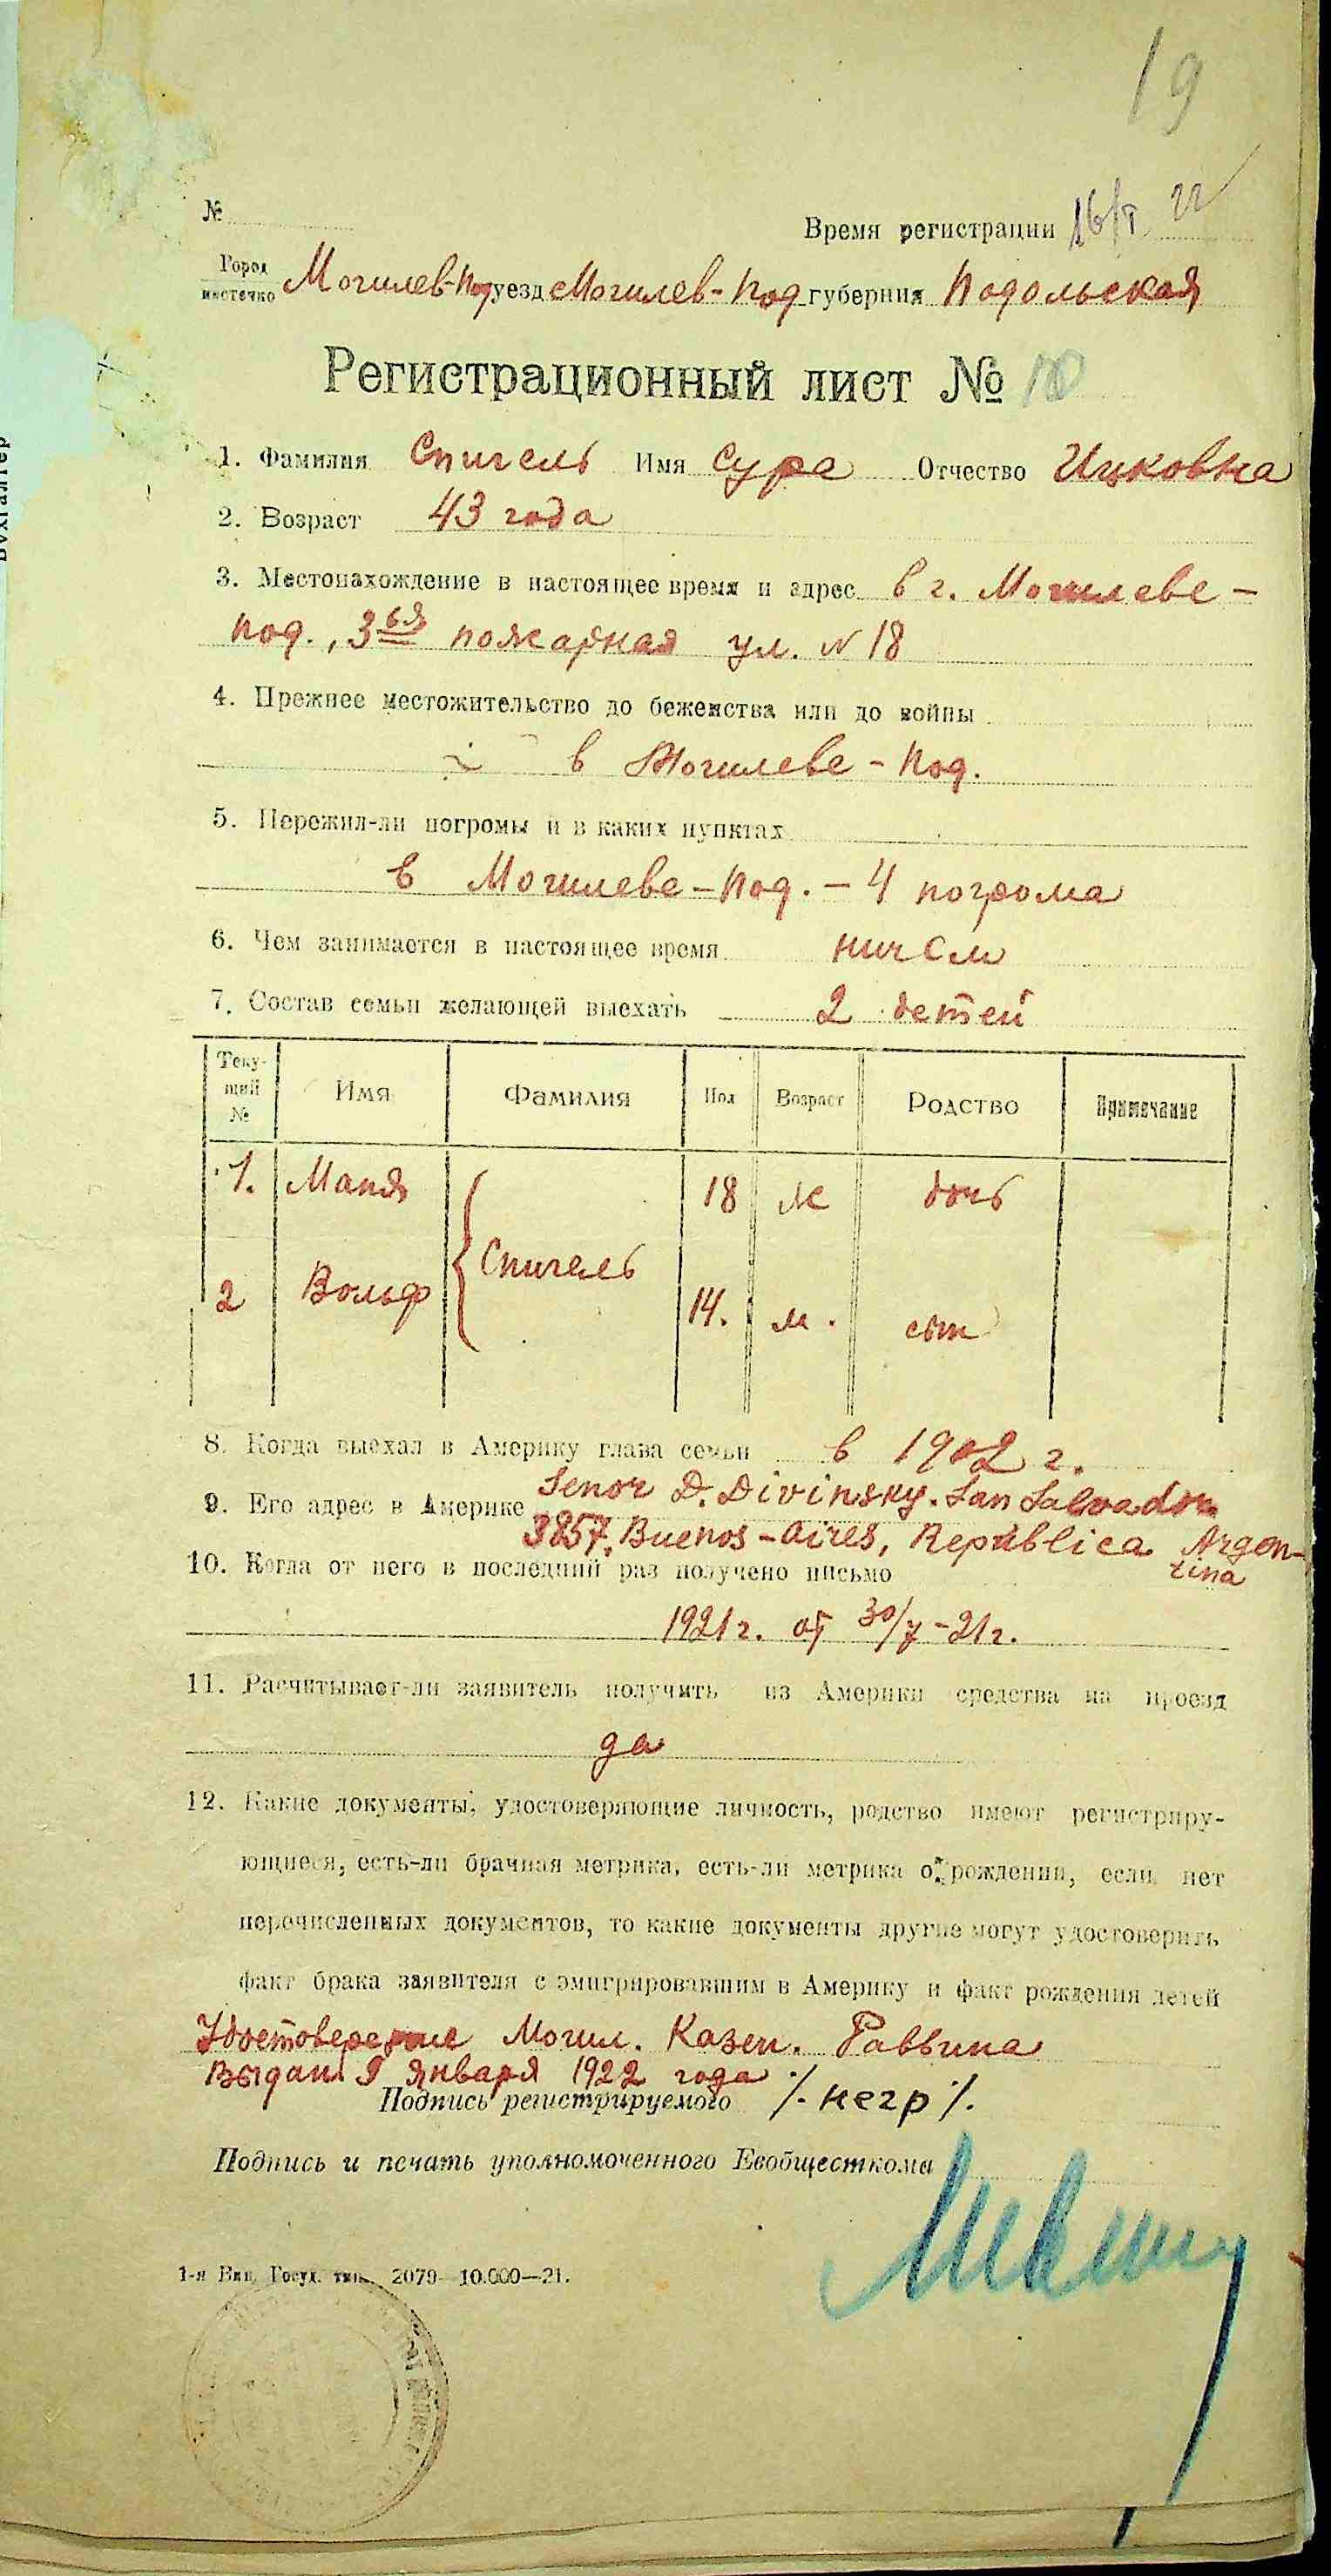 19
№
Время регистрации 16/I 22
Город
местечко Могилев-Под уезд Могилев-Под губерния Подольская
Регистрационный лист № 10
1. Фамилия Спигель Имя Сура Отчество Ицковна
2. Возраст 43 года
3. Местонахождение в настоящее время и адрес в г. Могилеве-
Под., 3ья пожарная ул. N 18
4. Прежнее местожительство до беженства или до войны
в Могилеве-Под.
5. Пережил-ли погромы и в каких пунктах
в Могилеве-Под. - 4 погрома
6. Чем занимается в настоящее время ничем
7. Состав семьи желающей выехать 2 детей
Теку-
щий
№ Имя Фамилия Пол Возраст Родство Примечание
1. Маня Спигель 18 ж дочь
2 Вольф 14. м. сын
8. Когда выехал в Америку глава семьи в 1902 г.
9. Его адрес в Америке Senor D. Divinsky. San Salvador
3857, Buenos-Aires, República Argen-
tina
10. Когда от него в последний раз получено письмо
1921 г. от 30/7-21 г.
11. Расчитывает-ли заявитель получить из Америки средства на проезд
да
12. Какие документы, удостоверяющие личность, родство имеют регистриру-
ющиеся, есть-ли брачная метрика, есть-ли метрика о рождении, если нет
перечисленных документов, то какие документы другие могут удостоверить
факт брака заявителя с эмигрировавшим в Америку и факт рождения детей
Удостоверение Могил. Казен. Раввина
Выдан 9 января 1922 года
Подпись регистрируемого /. негр /.
Подпись и печать уполномоченного Евобщесткома
1-я Вин. Госуд. тип. 2079 10.000—21.